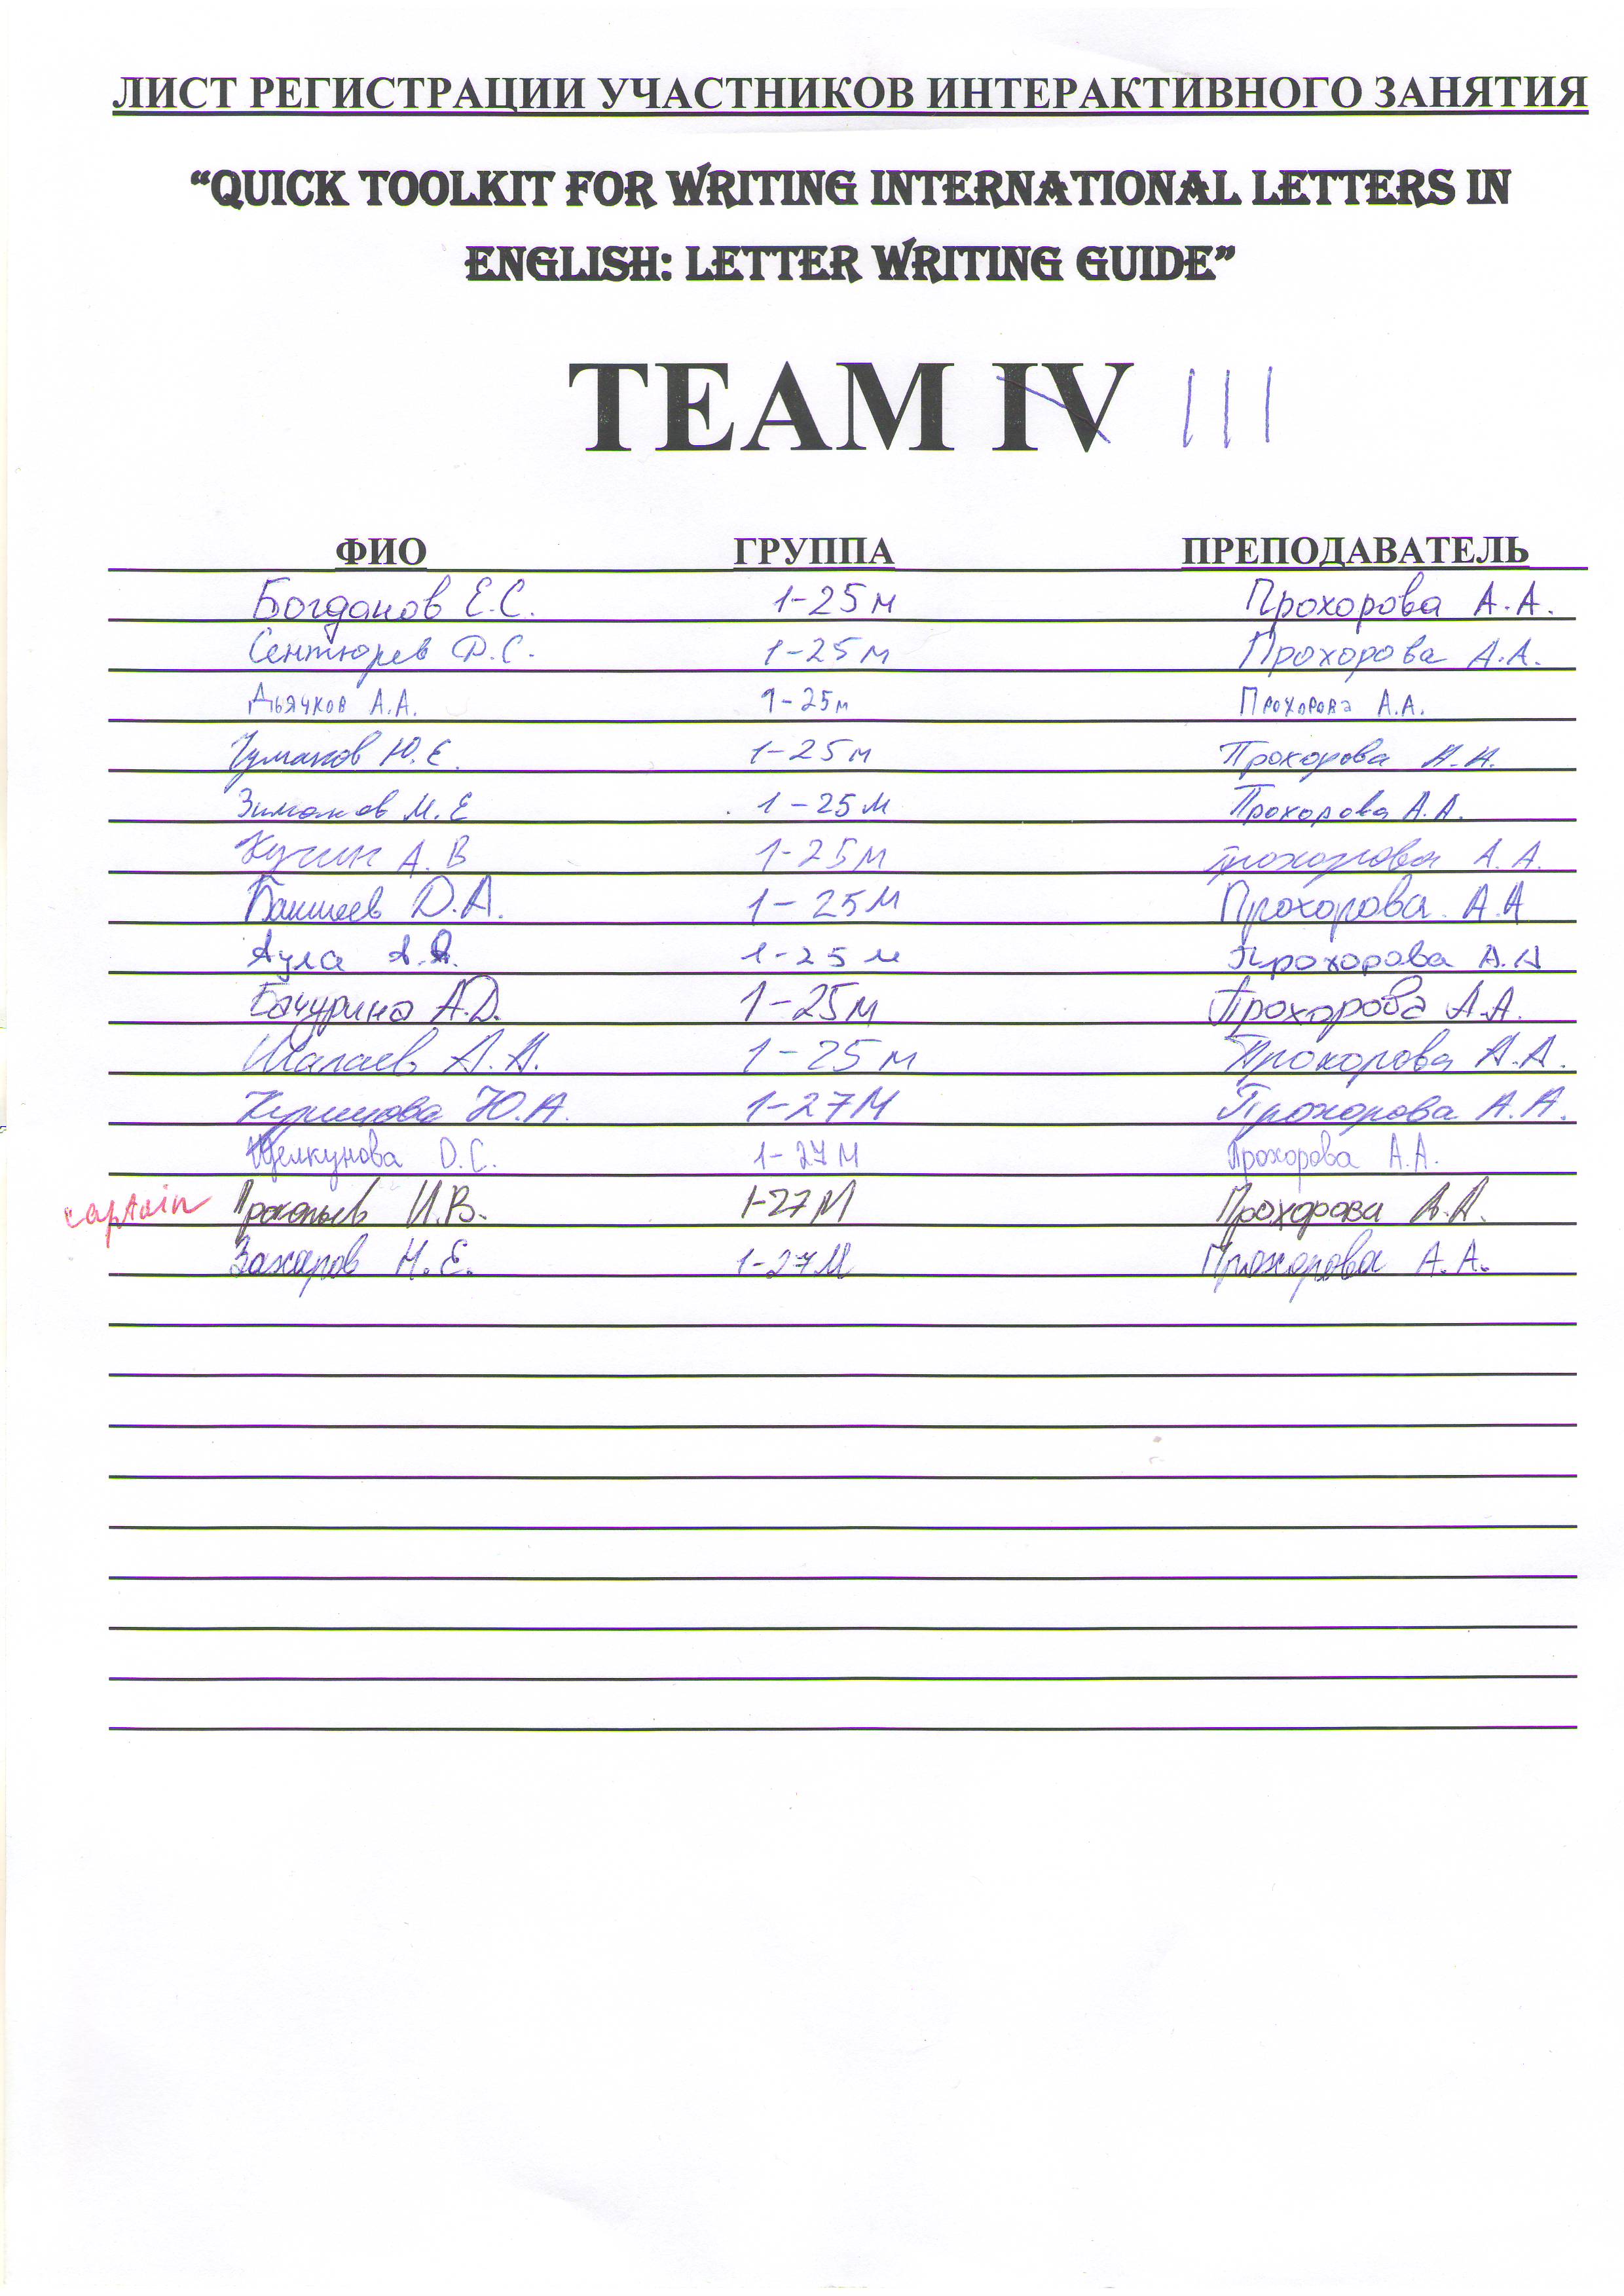 ЛИСТ РЕГИСТРАЦИИ УЧАСТНИКОВ ИНТЕРАКТИВНОГО ЗАНЯТИЯ
“QUICK TOOLKIT FOR WRITING INTERNATIONAL LETTERS IN
ENGLISH: LETTER WRITING GUIDE”
TEAM IV III
ФИО ГРУППА ПРЕПОДАВАТЕЛЬ
Богданов Е.С. 1-25м Прохорова А.А.
Сентюрев Д.С. 1-25м Прохорова А.А.
Дьячков А.А. 1-25м Прохорова А.А.
Чумаков Ю.Е. 1-25м Прохорова А.А.
Зимаков М.Е 1-25м Прохорова А.А.
А.В 1-25м Прохорова А.А.
Д.А. 1-25м Прохорова А.А
Аула А.Я. 1-25м Прохорова А.А
Бачурина А.Д. 1-25м Прохорова А.А.
Шалаев А.А. 1-25м Прохорова А.А.
Ю.А. 1-27М Прохорова А.А.
Щелкунова О.С. 1-27М Прохорова А.А.
captain Прокопьев И.В. 1-27М Прохорова А.А.
Захаров Н.Е. 1-27М Прохорова А.А.